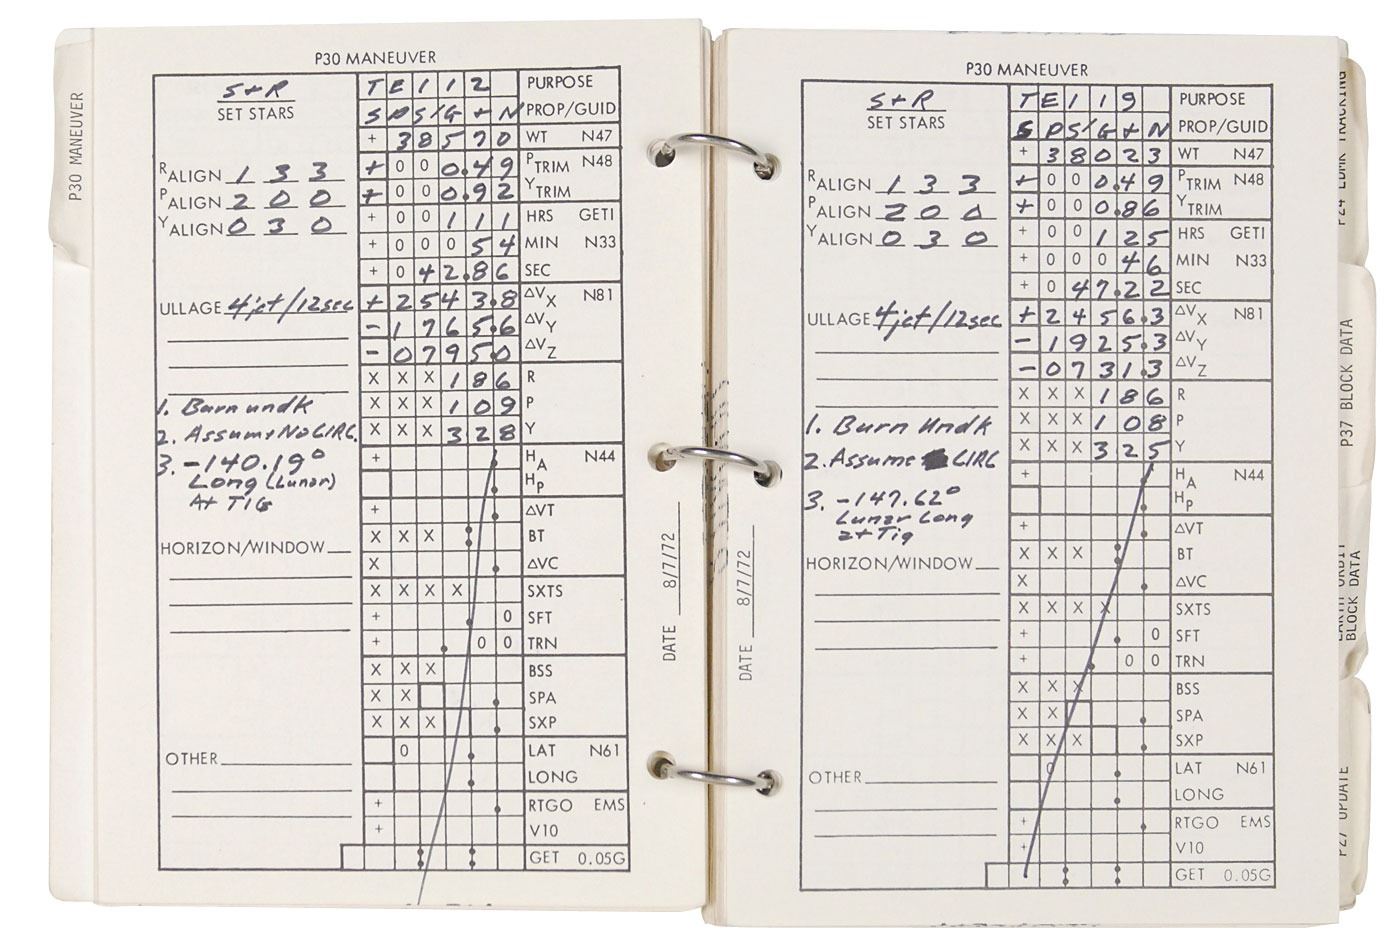 P30 MANEUVER
P30 MANEUVER
S+R
SET STARS
T E 1 1 2 PURPOSE
S P S/G + N PROP/GUID
+ 3 8 5 7 0 WT N47
R ALIGN 1 3 3
+ 0 0 0.4 9 P TRIM N48
P ALIGN 2 0 0
+ 0 0 0.9 2 Y TRIM
Y ALIGN 0 3 0
+ 0 0 1 1 1 HRS GETI
+ 0 0 0 5 4 MIN N33
+ 0 4 2.8 6 SEC
ULLAGE 4jet/12sec
+ 2 5 4 3.8 ΔVX N81
- 1 7 6 5.6 ΔVY
- 0 7 9 5.0 ΔVZ
X X X 1 8 6 R
1. Burn undk
X X X 1 0 9 P
2. Assume No CIRC.
X X X 3 2 8 Y
3. -140.19°
Long (Lunar)
At TIG
+ HA N44
HP
+ ΔVT
HORIZON/WINDOW
X X X BT
X ΔVC
X X X X SXTS
+ 0 SFT
+ 0 0 TRN
X X X BSS
X X SPA
X X X SXP
OTHER
0 LAT N61
LONG
+ RTGO EMS
+ V10
GET 0.05G
DATE 8/7/72
P30 MANEUVER
S+R
SET STARS
T E 1 1 9 PURPOSE
S P S/G + N PROP/GUID
+ 3 8 0 2 3 WT N47
R ALIGN 1 3 3
+ 0 0 0.4 9 P TRIM N48
P ALIGN 2 0 0
+ 0 0 0.8 6 Y TRIM
Y ALIGN 0 3 0
+ 0 0 1 2 5 HRS GETI
+ 0 0 0 4 6 MIN N33
+ 0 4 7.2 2 SEC
ULLAGE 4jet/12sec
+ 2 4 5 6.3 ΔVX N81
- 1 9 2 5.3 ΔVY
- 0 7 3 1.3 ΔVZ
X X X 1 8 6 R
1. Burn Undk
X X X 1 0 8 P
2. Assume CIRC
X X X 3 2 5 Y
3. -147.62°
Lunar Long
at Tig
+ HA N44
HP
+ ΔVT
HORIZON/WINDOW
X X X BT
X ΔVC
X X X X SXTS
+ 0 SFT
+ 0 0 TRN
X X X BSS
X X SPA
X X X SXP
OTHER
0 LAT N61
LONG
+ RTGO EMS
+ V10
GET 0.05G
DATE 8/7/72
P24 LDMK TRACKING
P37 BLOCK DATA
EARTH ORBIT
BLOCK DATA
P27 UPDATE